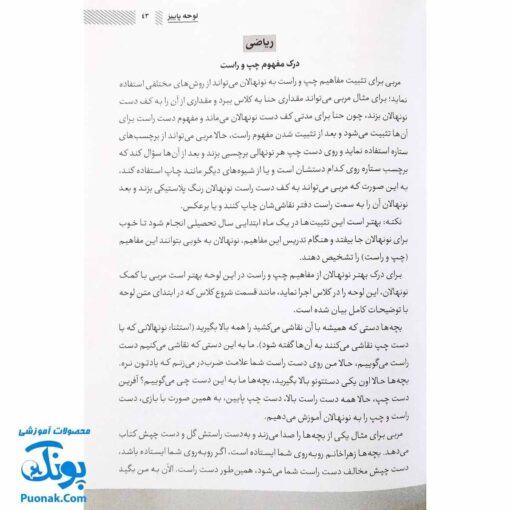 لوحه پاییز
۴۳
ریاضی
درک مفهوم چپ و راست
مربی برای تثبیت مفاهیم چپ و راست به نونهالان می‌تواند از روش‌های مختلفی استفاده
نماید؛ برای مثال مربی می‌تواند مقداری حنا به کلاس ببرد و مقداری از آن را به کف دست
نونهالان بزند، چون حنا برای مدتی کف دست نونهالان می‌ماند و مفهوم دست راست برای
آن‌ها تثبیت می‌شود و بعد از تثبیت شدن مفهوم راست، حالا مربی می‌تواند از برچسب‌های
ستاره استفاده نماید و روی دست چپ هر نونهالی برچسبی بزند و بعد از آن‌ها سؤال کند که
برچسب ستاره روی کدام دستشان است و یا از شیوه‌های دیگر مانند چاپ استفاده کند،
به این صورت که مربی می‌تواند به کف دست راست نونهالان رنگ پلاستیکی بزند و بعد
نونهالان آن را به سمت راست دفتر نقاشی‌شان چاپ کنند و یا برعکس.
نکته: بهتر است این تثبیت‌ها در یک ماه ابتدایی سال تحصیلی انجام شود تا خوب
برای نونهالان جا بیفتد و هنگام تدریس این مفاهیم، نونهالان به خوبی بتوانند این مفاهیم
(چپ و راست) را تشخیص دهند.
برای درک بهتر نونهالان از مفاهیم چپ و راست در این لوحه بهتر است مربی با کمک
نونهالان، این لوحه را در کلاس اجرا نماید، مانند قسمت شروع کلاس که در ابتدای متن لوحه
با توضیحات کامل بیان شده است.
بچه‌ها دستی که همیشه با آن نقاشی می‌کشید را همه بالا بگیرید (استثنا: نونهالانی که با
دست چپ نقاشی می‌کنند به آن‌ها گفته شود). ما به این دستی که نقاشی می‌کنیم دست
راست می‌گوییم، حالا من روی دست راست شما علامت ضربدر می‌زنم که یادتون نره.
بچه‌ها حالا اون یکی دستتونو بالا بگیرید، بچه‌ها ما به این دست چی می‌گوییم؟ آفرین
دست چپ، حالا همه دست راست بالا، دست چپ پایین، به همین صورت با بازی، دست
راست و چپ را به نونهالان آموزش می‌دهیم.
مربی برای مثال یکی از بچه‌ها را صدا می‌زند و به‌دست راستش گل و دست چپش کتاب
می‌دهد. بچه‌ها زهراخانم روبه‌روی شما ایستاده است، اگر روبه‌روی شما ایستاده باشد،
دست چپش مخالف دست راست شما می‌شود، همین‌طور دست راست. الان به من بگید
محصولات آموزشی
پونک
Puonak.Com